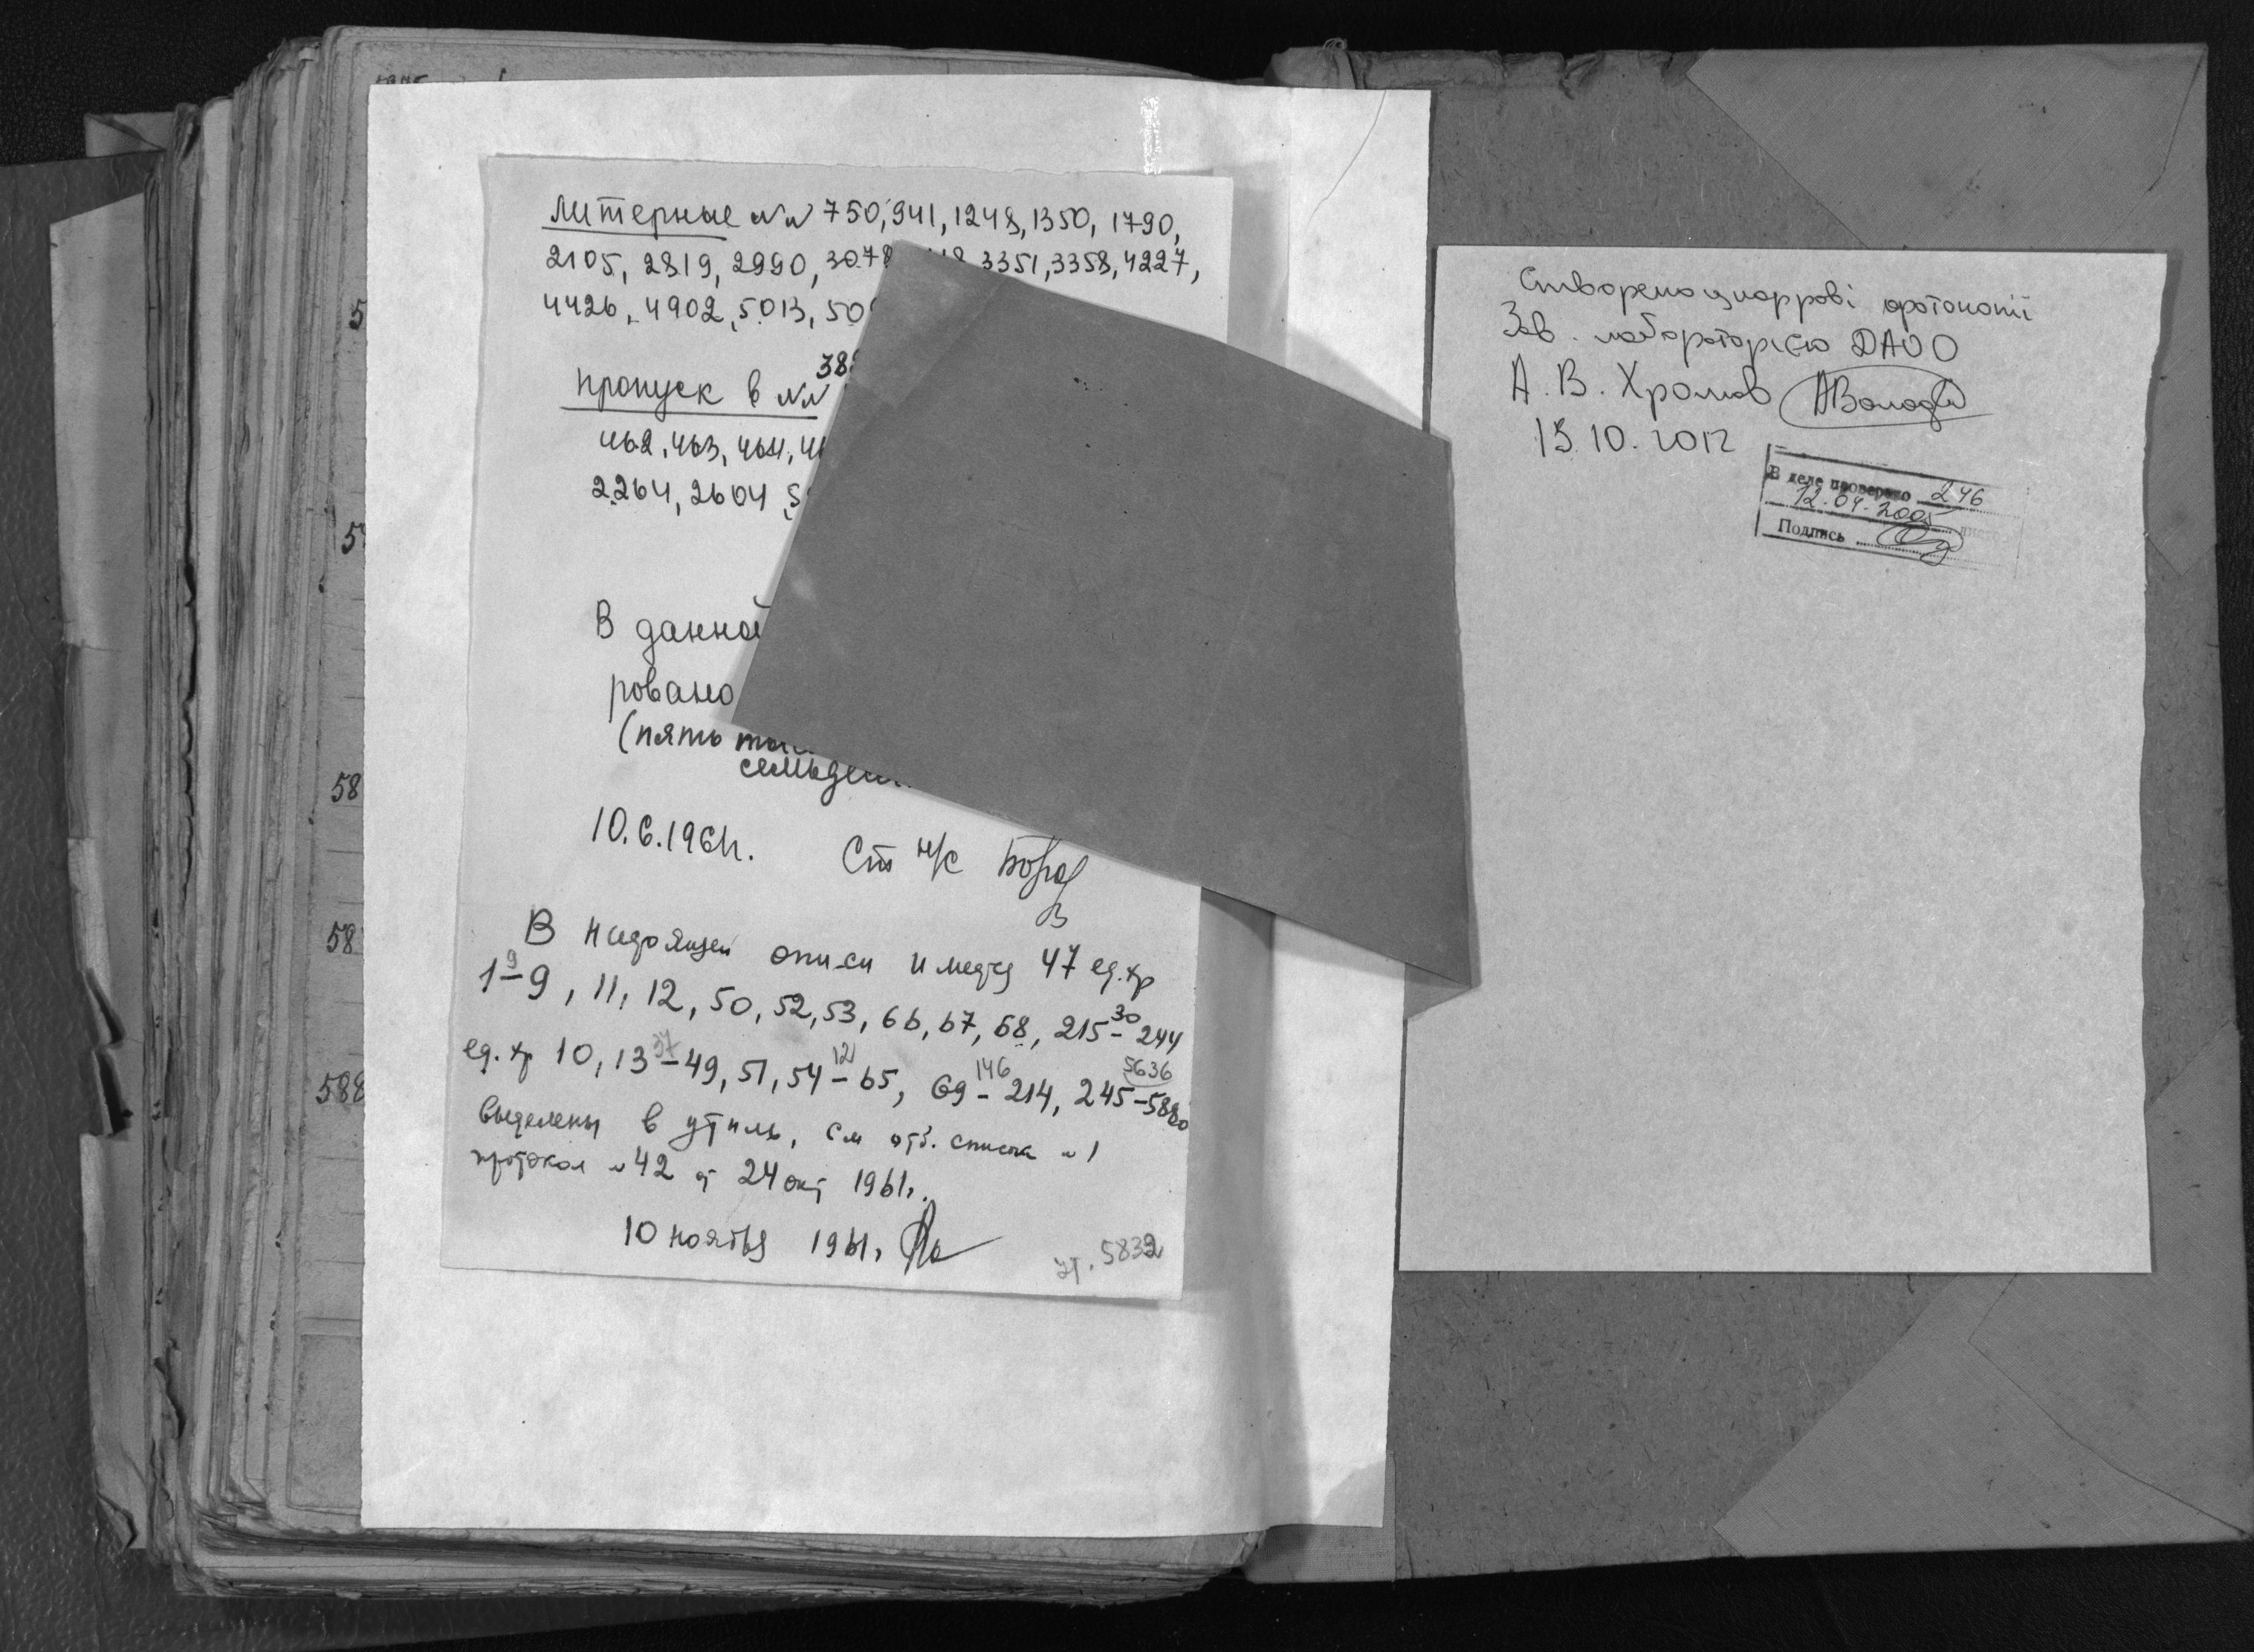 Литерные №№ 750, 941, 1248, 1350, 1790,
2105, 2819, 2990, 3078 3351, 3358, 4227,
4426, 4902, 5013, 50
38
пропуск в №№
462, 463, 464, 4
2264, 2604
В данной
ровано
(пять
семьдес
10.6.1961г. Ст н/с
В настоящей описи имеется 47 ед.хр
1-9, 11, 12, 50, 52, 53, 66, 67, 68, 215-244
9 30
ед. хр 10, 13-49, 51, 54-65, 69-214, 245-5880
37 12 146 5636
выделены в утиль, см отб. список № 1
протокол № 42 от 24 окт 1961г.
10 ноября 1961г.
ут. 5832
5
5
58
58
588
Створено цифрові фотокопії
Зав. лабораторією ДАОО
А. В. Хромов
15.10.2012
В деле проверено 246
12.04.2005 листов
Подпись